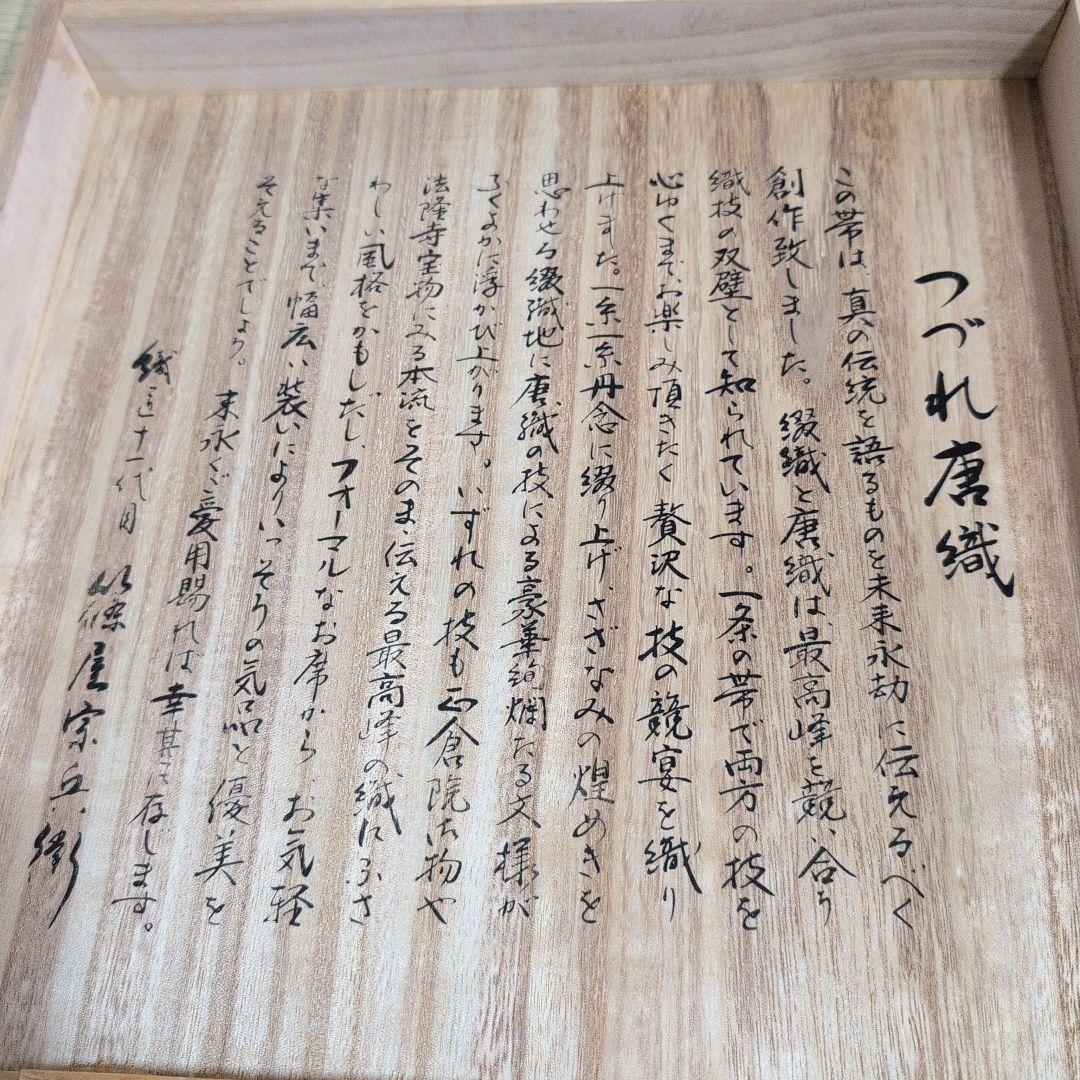 つづれ唐織
この帯は、真の伝統を語るものを未来永劫に伝えるべく
創作致しました。綴織と唐織は、最高峰を競い合う
織技の双璧として知られています。一条の帯で両方の技を
心ゆくまでお楽しみ頂きたく贅沢な技の競宴を織り
上げました。一糸一糸丹念に綴り上げ、さざなみの煌めきを
思わせる綴織地に唐織の技による豪華絢爛たる文様が
ふくよかに浮かび上がります。いずれの技も正倉院御物や
法隆寺宝物にみる本流をそのまま伝える最高峰の織にふさ
わしい風格をかもしだし、フォーマルなお席から、お気軽
な集いまで、幅広い装いによりいっそうの気品と優美を
そえることでしょう。末永くご愛用賜れば幸甚に存じます。
織こ十一代目 屋宗兵衛